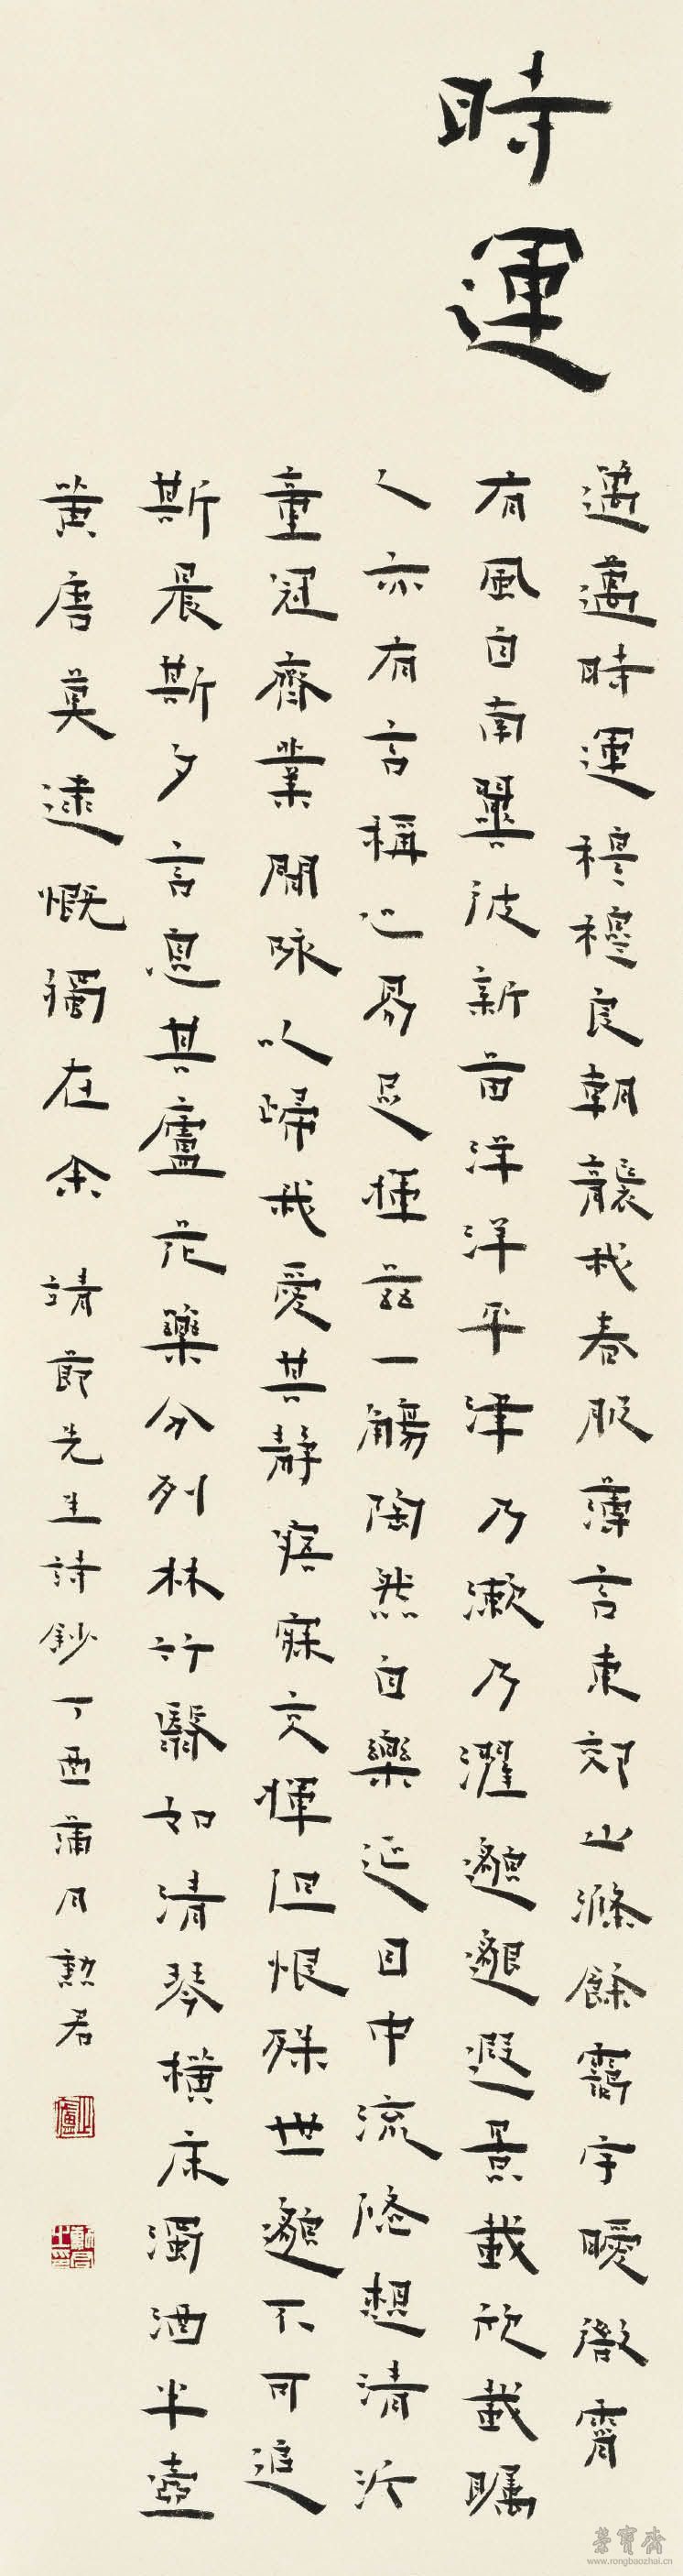 時運
邁邁時運穆穆良朝襲我春服薄言東郊山滌餘靄宇曖微霄
有風自南翼彼新苗洋洋平津乃漱乃濯邈邈遐景載欣載矚
人亦有言稱心易足揮茲一觴陶然自樂延目中流悠想清沂
童冠齊業閒咏以歸我愛其靜寤寐交揮但恨殊世邈不可追
斯晨斯夕言息其廬花藥分列林竹翳如清琴橫床濁酒半壺
黃唐莫逮慨獨在余 靖節先生詩鈔丁酉蒲月勲君
榮寶齋
www.rongbaozhai.cn